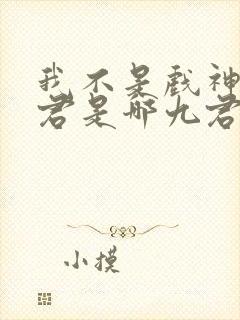 我不是戏神
君是哪九君
小摸